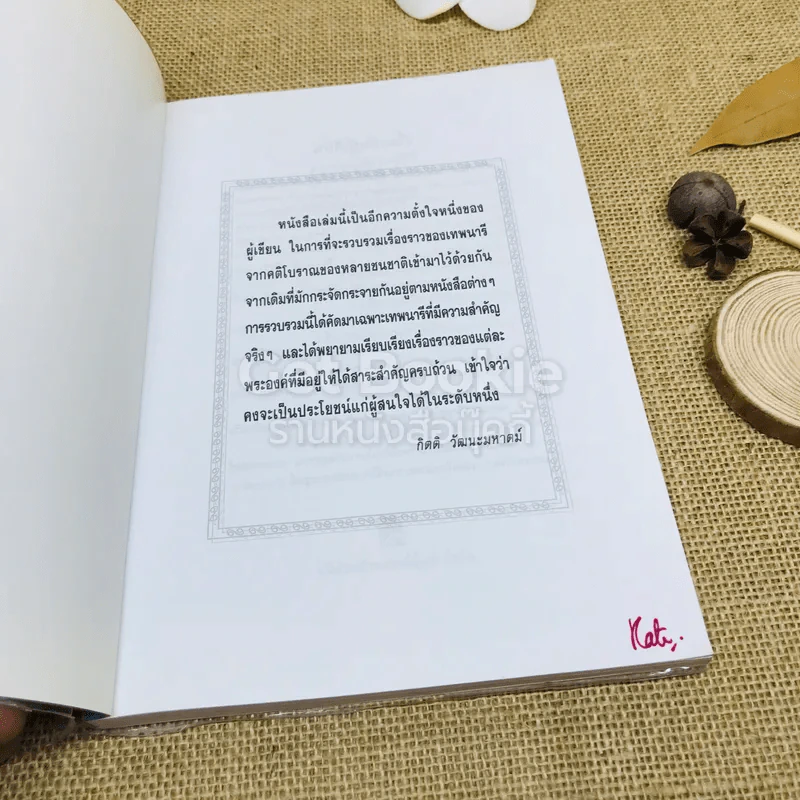 หนังสือเล่มนี้เป็นอีกความตั้งใจหนึ่งของ
ผู้เขียน ในการที่จะรวบรวมเรื่องราวของเทพนารี
จากคติโบราณของหลายชนชาติเข้ามาไว้ด้วยกัน
จากเดิมที่มักกระจัดกระจายกันอยู่ตามหนังสือต่างๆ
การรวบรวมนี้ได้คัดมาเฉพาะเทพนารีที่มีความสำคัญ
จริงๆ และได้พยายามเรียบเรียงเรื่องราวของแต่ละ
พระองค์ที่มีอยู่ให้ได้สาระสำคัญครบถ้วน เข้าใจว่า
คงจะเป็นประโยชน์แก่ผู้สนใจได้ในระดับหนึ่ง
กิตติ วัฒนะมหาตม์
Get Bookie
ร้านหนังสือบุ๊คกี้